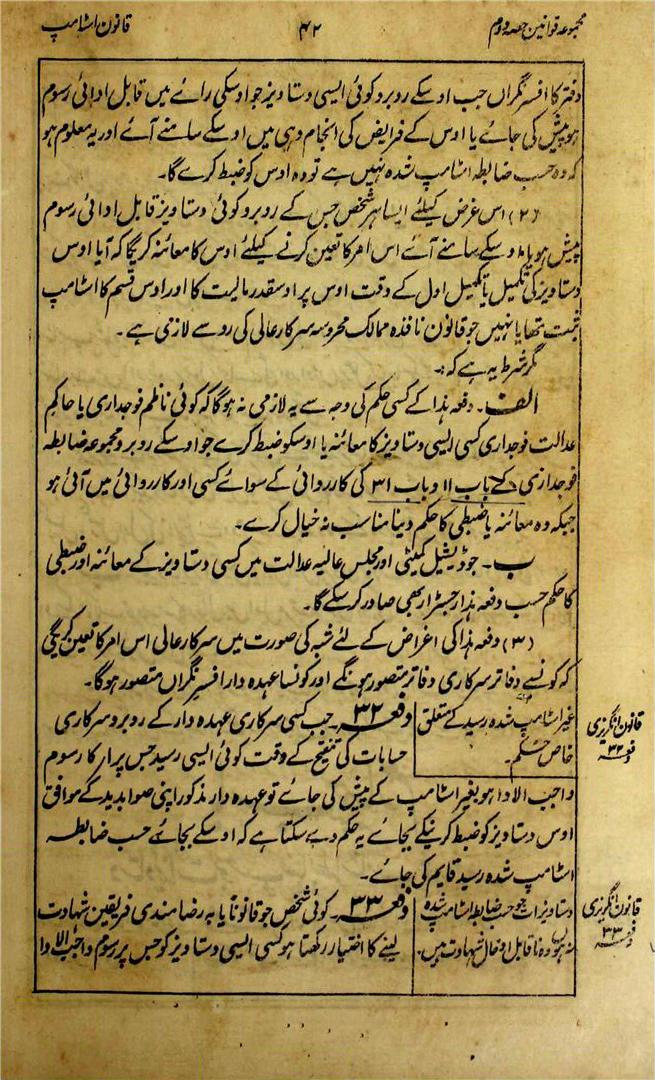 مجموعہ قوانین حصہ دوم ۴۲ قانون اسٹامپ
دفتر کا افسر نگراں جب اوسکے روبرو کوئی ایسی دستاویز جو اوسکی رائے میں قابل ادائی رسوم
ہو پیش کی جائے یا اوس کے فرایض کی انجام دہی میں اوسکے سامنے آئے اور یہ معلوم ہو
کہ وہ حسب ضابطہ اسٹامپ شدہ نہیں ہے تو وہ اوس کو ضبط کرے گا۔
(۲) اس غرض کیلئے ایسا ہر شخص جس کے روبرو کوئی دستاویز قابل ادائی رسوم
پیش ہو یا اوسکے سامنے آئے اس امر کا تعین کرنے کیلئے اوس کا معائنہ کریگا کہ آیا اوس
دستاویز کی تکمیل یا تکمیل اول کے وقت اوس پر اوسقدر مالیت کا اور اوس قسم کا اسٹامپ
ثبت تھا یا نہیں جو قانون نافذہ ممالک محروسہ سرکار عالی کی رو سے لازمی ہے۔
مگر شرط یہ ہے کہ:۔
الف۔ دفعہ ہذا کے کسی حکم کی وجہ سے یہ لازمی نہ ہوگا کہ کوئی ناظم فوجداری یا حاکم
عدالت فوجداری کسی ایسی دستاویز کا معائنہ یا اوسکو ضبط کرے جو اوسکے روبرو مجموعہ ضابطہ
فوجداری کے باب ۱۱ و باب ۳۱ کی کارروائی کے سوائے کسی اور کارروائی میں آئی ہو
جبکہ وہ معائنہ یا ضبطی کا حکم دینا مناسب نہ خیال کرے۔
ب۔ جوڈیشیل کمیٹی اور مجلس عالیہ عدالت میں کسی دستاویز کے معائنہ اور ضبطی
کا حکم حسب دفعہ ہذا رجسٹرار بھی صادر کرسکے گا۔
(۳) دفعہ ہذا کی اغراض کے لئے شبہ کی صورت میں سرکار عالی اس امر کا تعین کریگی
کہ کونسے دفاتر سرکاری دفاتر متصور ہونگے اور کونسا عہدہ دار افسر نگراں متصور ہوگا۔
قانون انگریزی
دفعہ ۳۲
غیر اسٹامپ شدہ رسید کے متعلق
خاص حکم۔
دفعہ ۳۲۔ جب کسی سرکاری عہدہ دار کے روبرو سرکاری
حسابات کی تنقیح کے وقت کوئی ایسی رسید جس پر ارکا رسوم
واجب الادا ہو بغیر اسٹامپ کے پیش کی جائے تو عہدہ دار مذکور اپنی صوابدید کے موافق
اوس دستاویز کو ضبط کرنیکے بجائے یہ حکم دے سکتا ہے کہ اوسکے بجائے حسب ضابطہ
اسٹامپ شدہ رسید قایم کی جائے۔
قانون انگریزی
دفعہ ۳۳
دستاویزات جو حسب ضابطہ اسٹامپ شدہ
نہ ہوں وہ ناقابل ادخال شہادت ہیں۔
دفعہ ۳۳۔ کوئی شخص جو قانونا یا بہ رضامندی فریقین شہادت
لینے کا اختیار رکھتا ہو کسی ایسی دستاویز کو جس پر رسوم واجب الادا